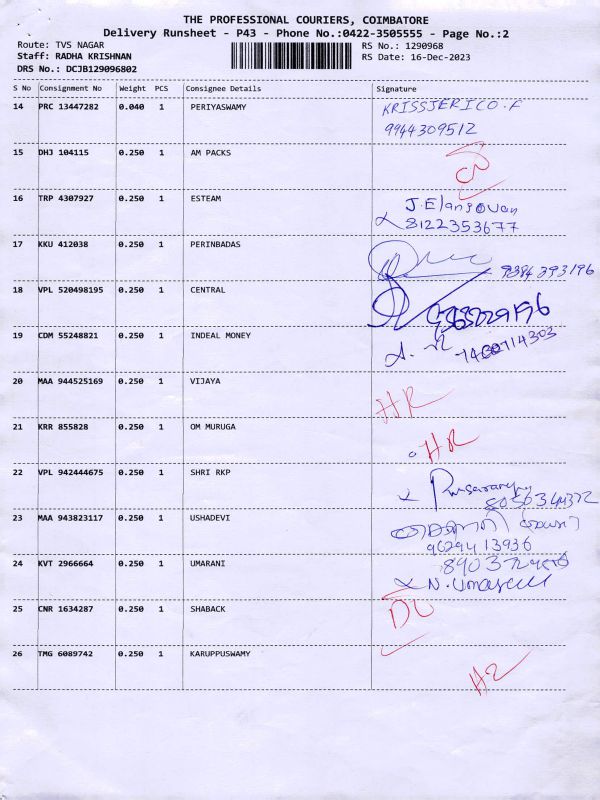 THE PROFESSIONAL COURIERS, COIMBATORE
Delivery Runsheet - P43 - Phone No.:0422-3505555 - Page No.:2
Route: TVS NAGAR
RS No.: 1290968
Staff: RADHA KRISHNAN
RS Date: 16-Dec-2023
DRS No.: DCJB129096802
S No Consignment No Weight PCS Consignee Details Signature
14 PRC 13447282 0.040 1 PERIYASWAMY KRISSJERICO.F
9944309512
15 DHJ 104115 0.250 1 AM PACKS
16 TRP 4307927 0.250 1 ESTEAM J.Elangovan
8122353677
17 KKU 412038 0.250 1 PERINBADAS
9384393196
18 VPL 520498195 0.250 1 CENTRAL
19 CDM 55248821 0.250 1 INDEAL MONEY
20 MAA 944525169 0.250 1 VIJAYA
HR
21 KRR 855828 0.250 1 OM MURUGA
HR
22 VPL 942444675 0.250 1 SHRI RKP
23 MAA 943823117 0.250 1 USHADEVI
9629413936
24 KVT 2966664 0.250 1 UMARANI
25 CNR 1634287 0.250 1 SHABACK
26 TMG 6089742 0.250 1 KARUPPUSWAMY